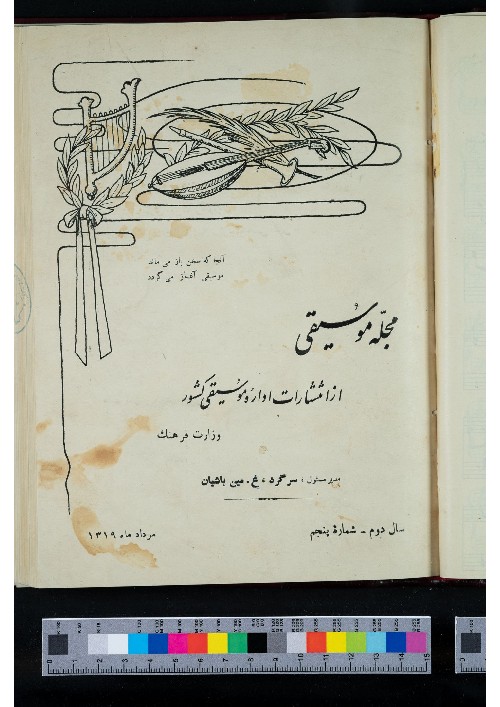 آنجا که سخن باز می ماند
موسیقی آغاز می گردد
مجلّه موسیقی
از انتشارات ادارهٔ موسیقی کشور
وزارت فرهنگ
مدیر مسئول : سرگرد ، غ . مین باشیان
سال دوم - شمارهٔ پنجم
مرداد ماه ۱۳۱۹
0 1 2 3 4 5 6 7 8 9 10 11 12 13 14 15